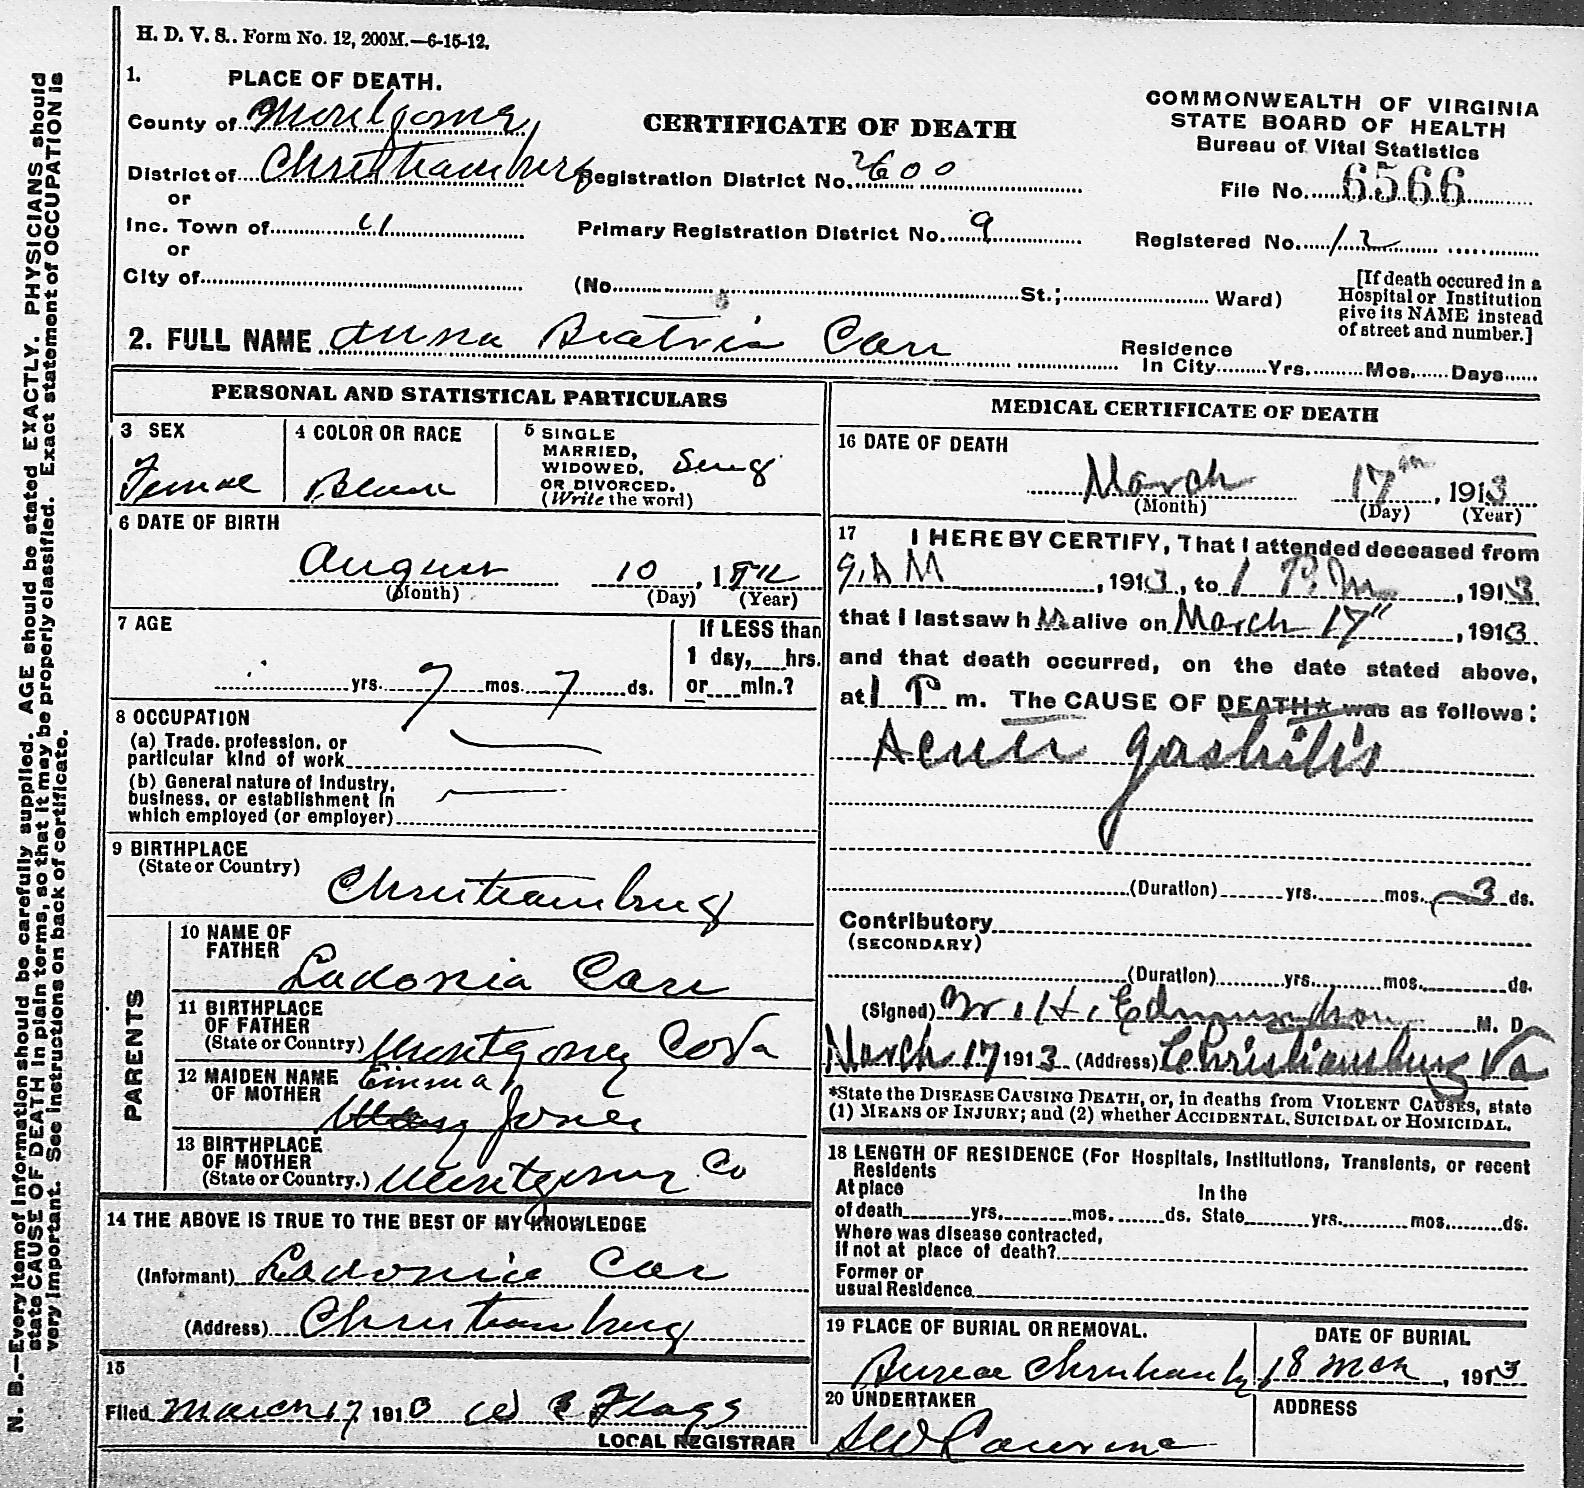 H. D. V. S.. Form No. 12, 200M.—6-15-12.
1. PLACE OF DEATH.
County of Montgomery
District of Christiansburg
or
Inc. Town of "
or
City of
CERTIFICATE OF DEATH
Registration District No. 2600
Primary Registration District No. 9
(No. St.; Ward)
COMMONWEALTH OF VIRGINIA
STATE BOARD OF HEALTH
Bureau of Vital Statistics
File No. 6566
Registered No. 12
[If death occured in a
Hospital or Institution
give its NAME instead
of street and number.]
2. FULL NAME Anna Beatris Carr
Residence
In City Yrs. Mos. Days
PERSONAL AND STATISTICAL PARTICULARS
3 SEX
Female
4 COLOR OR RACE
Black
5 SINGLE
MARRIED,
WIDOWED,
OR DIVORCED.
(Write the word)
Sing
6 DATE OF BIRTH
August 10, 1912
(Month) (Day) (Year)
7 AGE
yrs. 7 mos. 7 ds.
If LESS than
1 day, hrs.
or min.?
8 OCCUPATION
(a) Trade, profession, or
particular kind of work
(b) General nature of Industry,
business, or establishment in
which employed (or employer)
9 BIRTHPLACE
(State or Country)
Christiansburg
PARENTS
10 NAME OF
FATHER
Ladonia Carr
11 BIRTHPLACE
OF FATHER
(State or Country) Montgomery Co Va
12 MAIDEN NAME
OF MOTHER
Emma
Mary Jones
13 BIRTHPLACE
OF MOTHER
(State or Country.) Montgomery Co
14 THE ABOVE IS TRUE TO THE BEST OF MY KNOWLEDGE
(Informant) Ladonia Car
(Address) Christiansburg
15
Filed March 17 1913 W E Flagg
LOCAL REGISTRAR
MEDICAL CERTIFICATE OF DEATH
16 DATE OF DEATH
March 17th, 1913
(Month) (Day) (Year)
17 I HEREBY CERTIFY, That I attended deceased from
9 A M, 1913, to 1 P. M., 1913
that I last saw h alive on March 17", 1913
and that death occurred, on the date stated above,
at 1 P m. The CAUSE OF DEATH* was as follows:
Acute gastritis
(Duration) yrs. mos. 3 ds.
Contributory
(SECONDARY)
(Duration) yrs. mos. ds.
(Signed) W. H. Edmundson M. D
March 17 1913 (Address) Christiansburg Va
*State the DISEASE CAUSING DEATH, or, in deaths from VIOLENT CAUSES, state
(1) MEANS OF INJURY; and (2) whether ACCIDENTAL, SUICIDAL or HOMICIDAL.
18 LENGTH OF RESIDENCE (For Hospitals, Institutions, Transients, or recent
Residents
At place
of death yrs. mos. ds.
In the
State yrs. mos. ds.
Where was disease contracted,
if not at place of death?
Former or
usual Residence
19 PLACE OF BURIAL OR REMOVAL.
Christiansburg
DATE OF BURIAL
18 Mch, 1913
20 UNDERTAKER
ADDRESS
N. B.—Every item of information should be carefully supplied. AGE should be stated EXACTLY. PHYSICIANS should
state CAUSE OF DEATH in plain terms, so that it may be properly classified. Exact statement of OCCUPATION is
very important. See instructions on back of certificate.